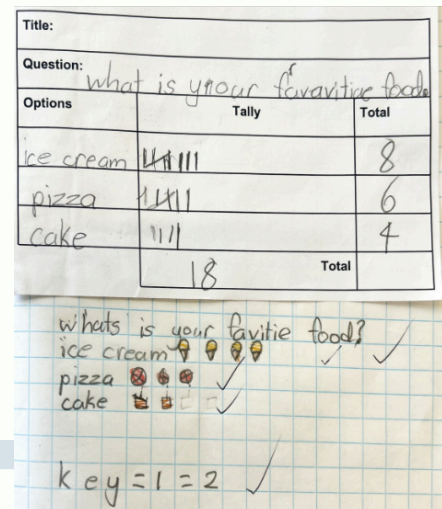 Title:
Question: what is your favavitiae food.
Options Tally Total
ice cream 8
pizza 6
cake 4
18 Total
whats is your favitie food?
ice cream
pizza
cake
key = 1 = 2